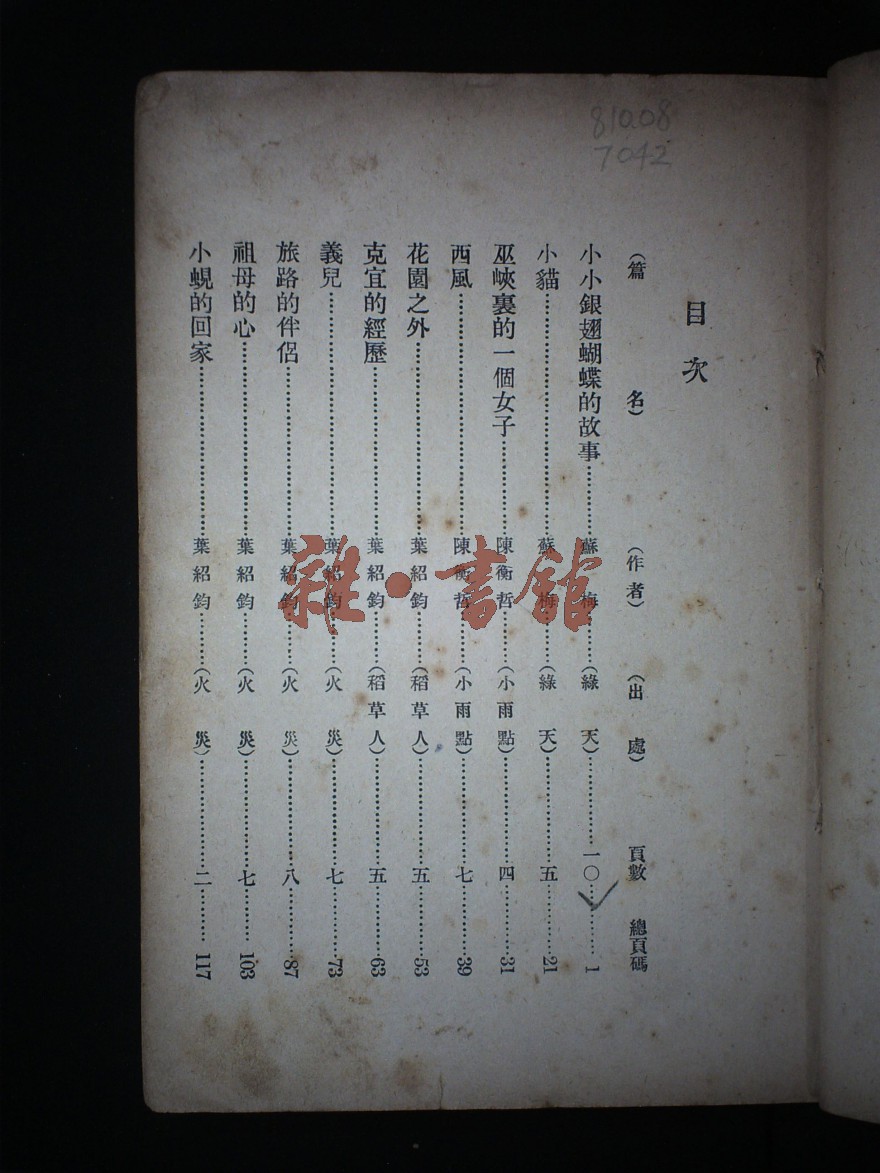 810.08
7042
目次
(篇名) (作者) (出處) 頁數 總頁碼
小小銀翅蝴蝶的故事……蘇梅……(綠天)……一〇……1
小貓……蘇梅……(綠天)……五……21
巫峽裏的一個女子……陳衡哲……(小雨點)……四……31
西風……陳衡哲……(小雨點)……七……39
花園之外……葉紹鈞……(稻草人)……五……53
克宜的經歷……葉紹鈞……(稻草人)……五……63
義兒……葉紹鈞……(火災)……七……73
旅路的伴侶……葉紹鈞……(火災)……八……87
祖母的心……葉紹鈞……(火災)……七……103
小蜆的回家……葉紹鈞……(火災)……二……117
雜·書館